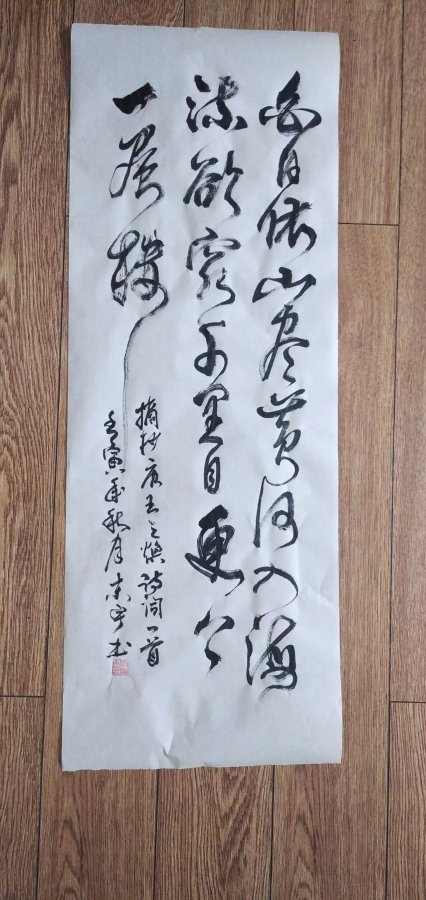 白日依山尽黄河入海
流欲穷千里目更上
一层楼
摘抄唐王之焕诗词一首
壬寅年秋月宁书